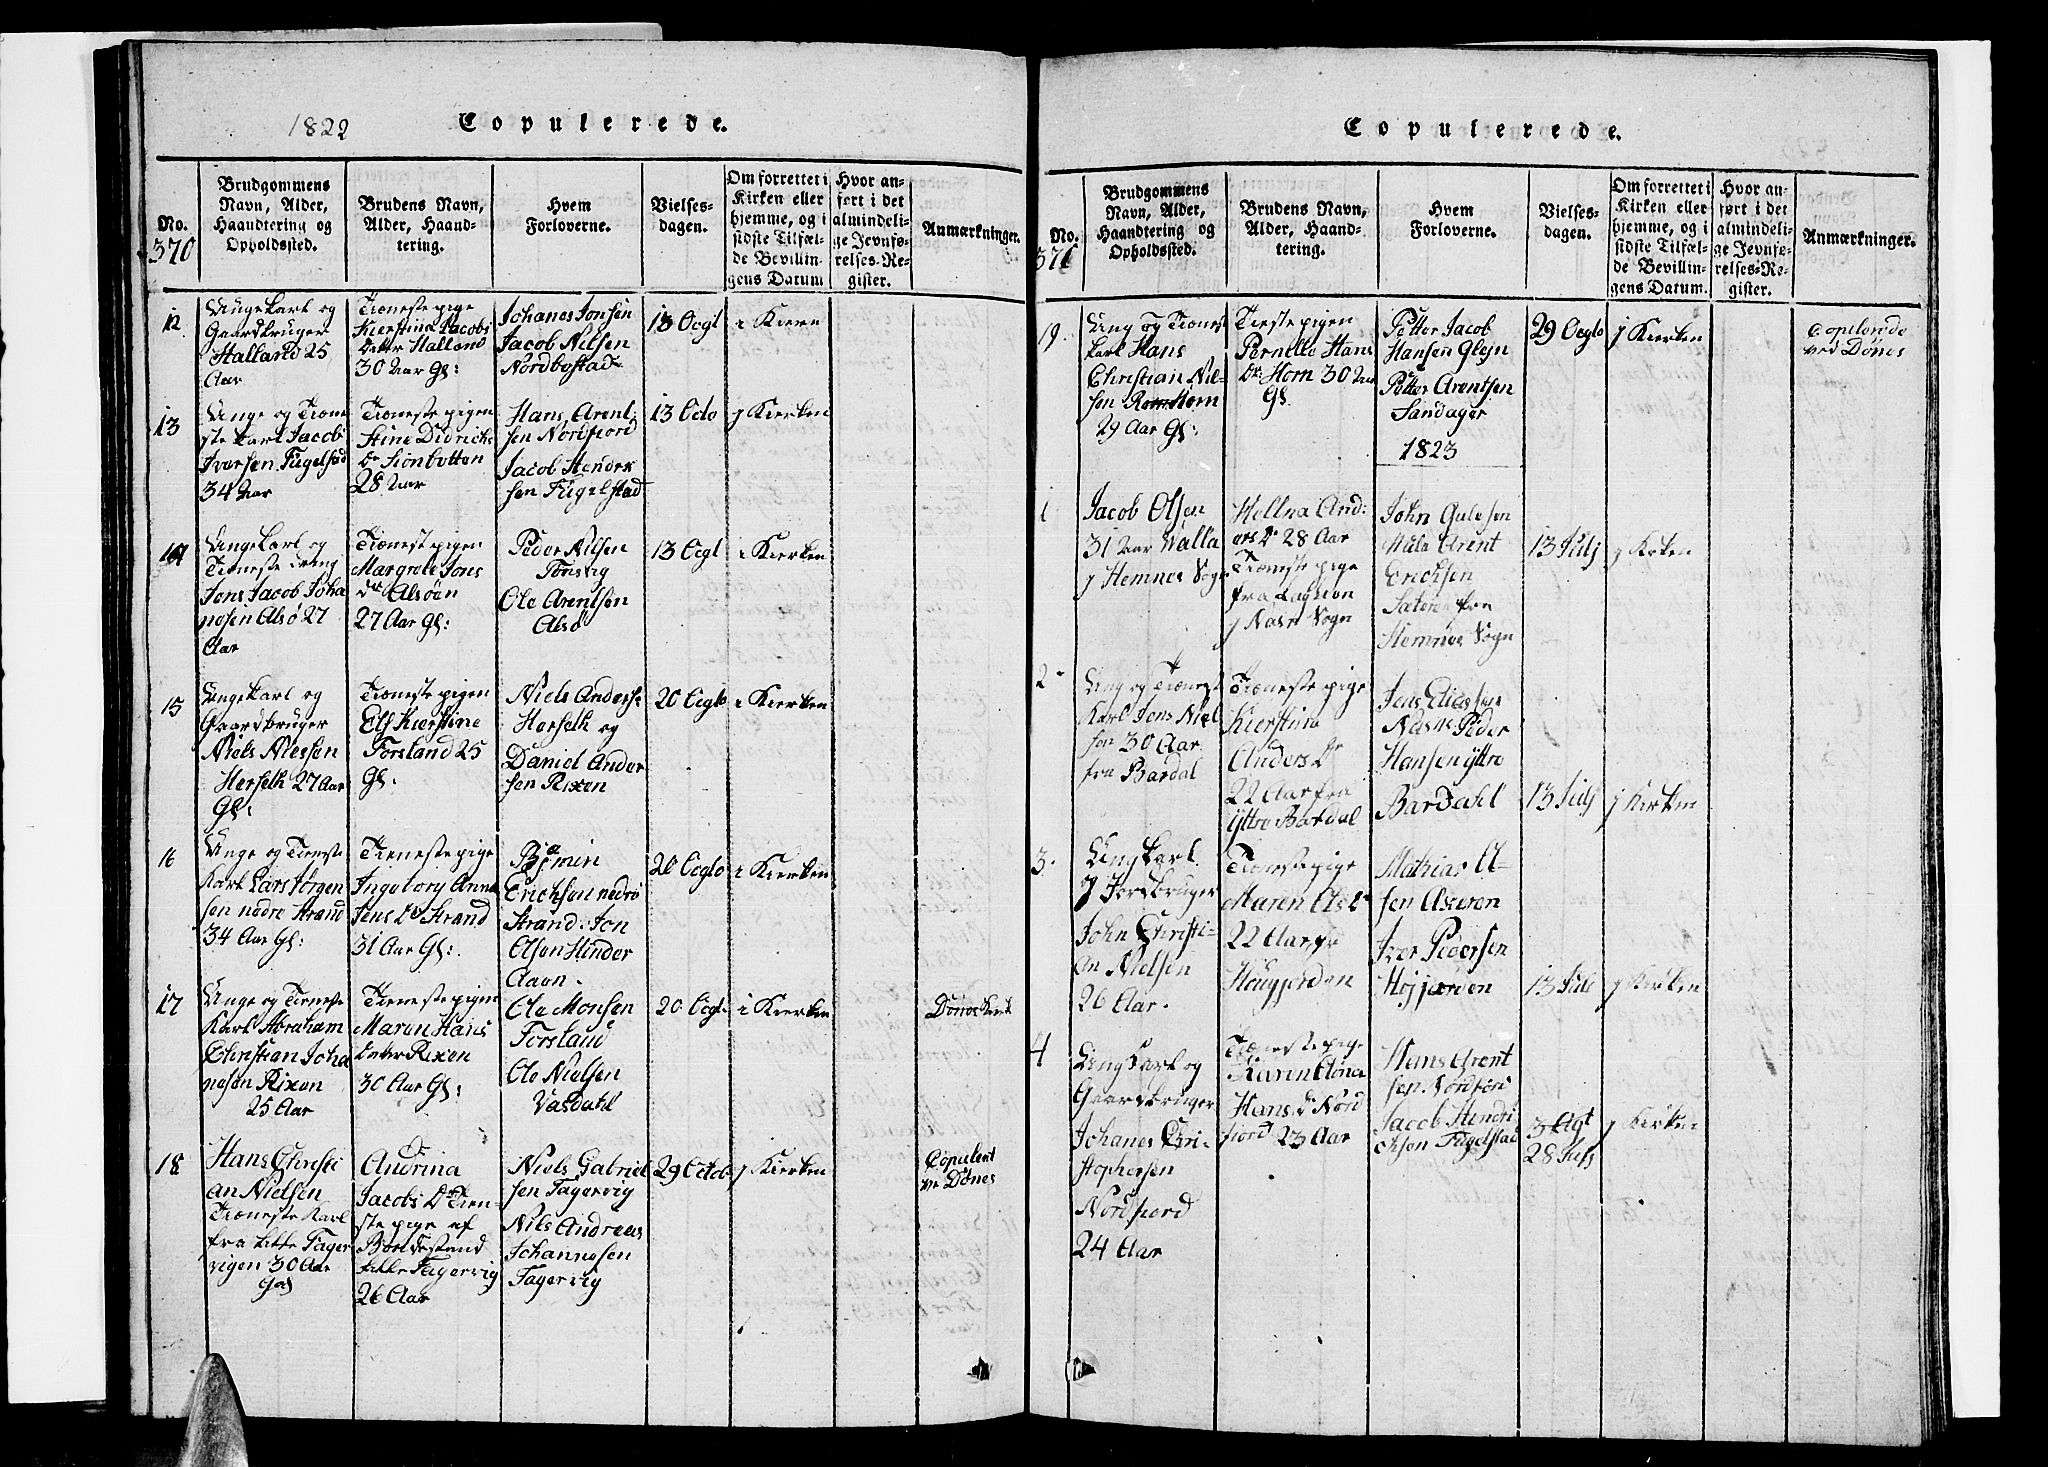 1822
Copulerede.
No.
370
Brudgommens
Navn, Alder,
Haandtering og
Opholdssted.
Brudens Navn,
Alder, Haand-
tering.
Hvem
Forloverne.
Vielses-
dagen.
Om forrettet i
Kirken eller
hjemme, og i
sidste Tilfæl-
de Bevillin-
gens Datum
Hvor an-
ført i det
almindeli-
ge Jevnfø-
relses-Re-
gister.
Anmærkninger.
12
Ungekarl og
Gaardbruger
Halland 25
Aar
Tieneste pige
Kierstina Jacobs
datter Halland
30 Aar Gl:
Johanes Jonsen
Jacob Nilsen
Nordbostad
13
Unge og Tiene
ste karl Jacob
Iversen Fugelstad
34 Aar
Tieneste pigen
Stine Didrichs
28 Aar
Hans Arent
sen Nordfiord
Jacob Hendrek
sen Fugelstad
13 Octo
j Kierken
14
Ungekarl og
Tieneste dreng
Jons Jacob Joha
nesen Alsø 27
Aar
Tieneste pigen
Margrete Jons
dr Alsøen
27 Aar Gl:
Peder Nilsen
Ole Arentsen
Alsø
i Kierken
15
Ungekarl og
Gaardbruger
Niels Nilessen
Herfelh 27 Aar
Gl:
Tieneste pigen
Els Kierstine
Forsland 25
Gl:
Niels Anders
Herfelh og
Daniel Ander
sen Rixen
i Kierken
16
Unge og Tieneste
Karl Lars Jørgen
sen nedre Strand
34 Aar Gl:
Tieneste pige
Ingeborg Anna
Jens Dr Strand
31 Aar Gl:
Erichsen nedre
Strand: Jon
Olsen Hinder
Aavn.
i Kierken
17
Unge og Tieneste
Karl Abraham
Christian Joha
nesen Rixen
25 Aar
Tieneste pigen
Maren Hans
datter Rixen
30 Aar Gl:
Ole Monsen
Forsland
Ole Nielsen
Vasdahl
i Kierken
18
Hans Christi
an Nielsen
Tieneste Karl
fra Litte Fager
vigen 30 Aar
Andrina
Jacobs Dr Tien-
ste pige af
Litle Fagervig
26 Aar
Niels Gabriel
sen Fagervig
Nils Andreas
Johannesen
Fagervig
29 Octob
j Kierken
Copulert
ve Dönes
Copulerede.
No.
371
Brudgommens
Navn, Alder,
Haandtering og
Opholdssted.
Brudens Navn,
Alder, Haand-
tering.
Hvem
Forloverne.
Vielses-
dagen.
Om forrettet i
Kirken eller
hjemme, og i
sidste Tilfæl-
de Bevillin-
gens Datum.
Hvor an-
ført i det
almindeli-
ge Jevnfø-
relses-Re-
gister.
Anmærkninger.
19.
Ung og Tienest
karl Hans
Christian Nil-
sen Horn
29 Aar Gl:
Pernelle Hans
Dr Horn 30 Aar
Gl.
Petter Jacob
Hansen Glejn
Petter Arentsen
Sandager
1823
j Kierken
ved Dönes
1
Jacob Olsen
31 Aar Valla
j Hemnes Sogn
Mellna And:
ers Dr 28 Aar
Tieneste pige
j Nasn Sogn
John Gulesen
Mula Arent
Ericksen
Hemnes Sogn
13 Julj
j Kirken
2
Ung og Tienest
Karl Jens Niel
sen 30 Aar
fra Bardal
Tieneste pige
Kierstina
Anders Dr
22 Aar fra
yttre Bardal
Jens Eliassen
Nesne Peder
Hansen yttre
Bardahl
13 Julj
j Kirken
3.
Ung karl
og Jordbruger
John Christi-
an Nielsen
26 Aar.
Tieneste pige
22 Aar
Høugjorden
Mathias O-
sen Axeren
Iver Pedersen
Højjorden
j Kirken
4
Ung karl og
Gaardbruger
Johanes Chri-
stophersen
Nordfiord
24 Aar
Tieneste pige
Karin Elena
Hans Dr Nord
fiord 23 Aar
Hans Arent
sen Nordfiord
Jacob Hendri
chsen Fugelstad
3 Agt
j Kirken